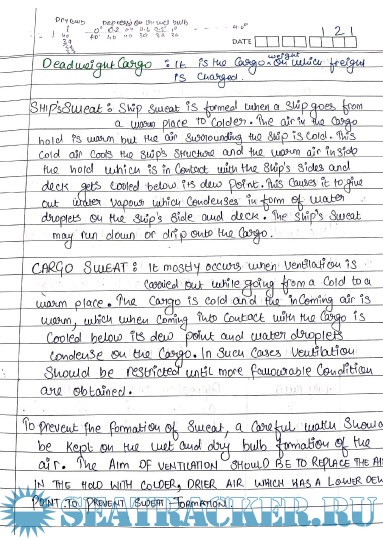 Dry bulb Depression of wet bulb
DATE 1 2 1
Deadweight Cargo : It is the Cargo on which weight freight
is Charged.
SHIP's Sweat : Ship Sweat is formed when a Ship goes from
a warm place to Colder. The air in the Cargo
hold is warm but the air Surrounding the Ship is Cold. This
Cold air Cools the Ship's Structure and the warm air inside
the hold which is in Contact with the Ship's Sides and
deck gets Cooled below its dew Point. This Causes it to give
out water Vapour which Condenses in form of water
droplets on the Ship's Side and deck. The Ship's Sweat
may run down or drip onto the Cargo.
CARGO SWEAT : It mostly occurs when Ventilation is
Carried out while going from a Cold to a
warm place. The Cargo is cold and the inComing air is
warm, which when coming into Contact with the Cargo is
Cooled below its dew point and water droplets
condense on the Cargo. In Such Cases Ventilation
Should be restricted until more favourable Condition
are obtained.
To prevent the formation of Sweat, a Careful watch Should
be Kept on the wet and dry bulb formation of the
air. The AIM OF VENTILATION SHOULD BE TO REPLACE THE AIR
IN THE HOLD WITH COLDER, DRIER AIR WHICH HAS A LOWER DEW
POINT TO PREVENT SWEAT FORMATION.
SEATRACKER.RU